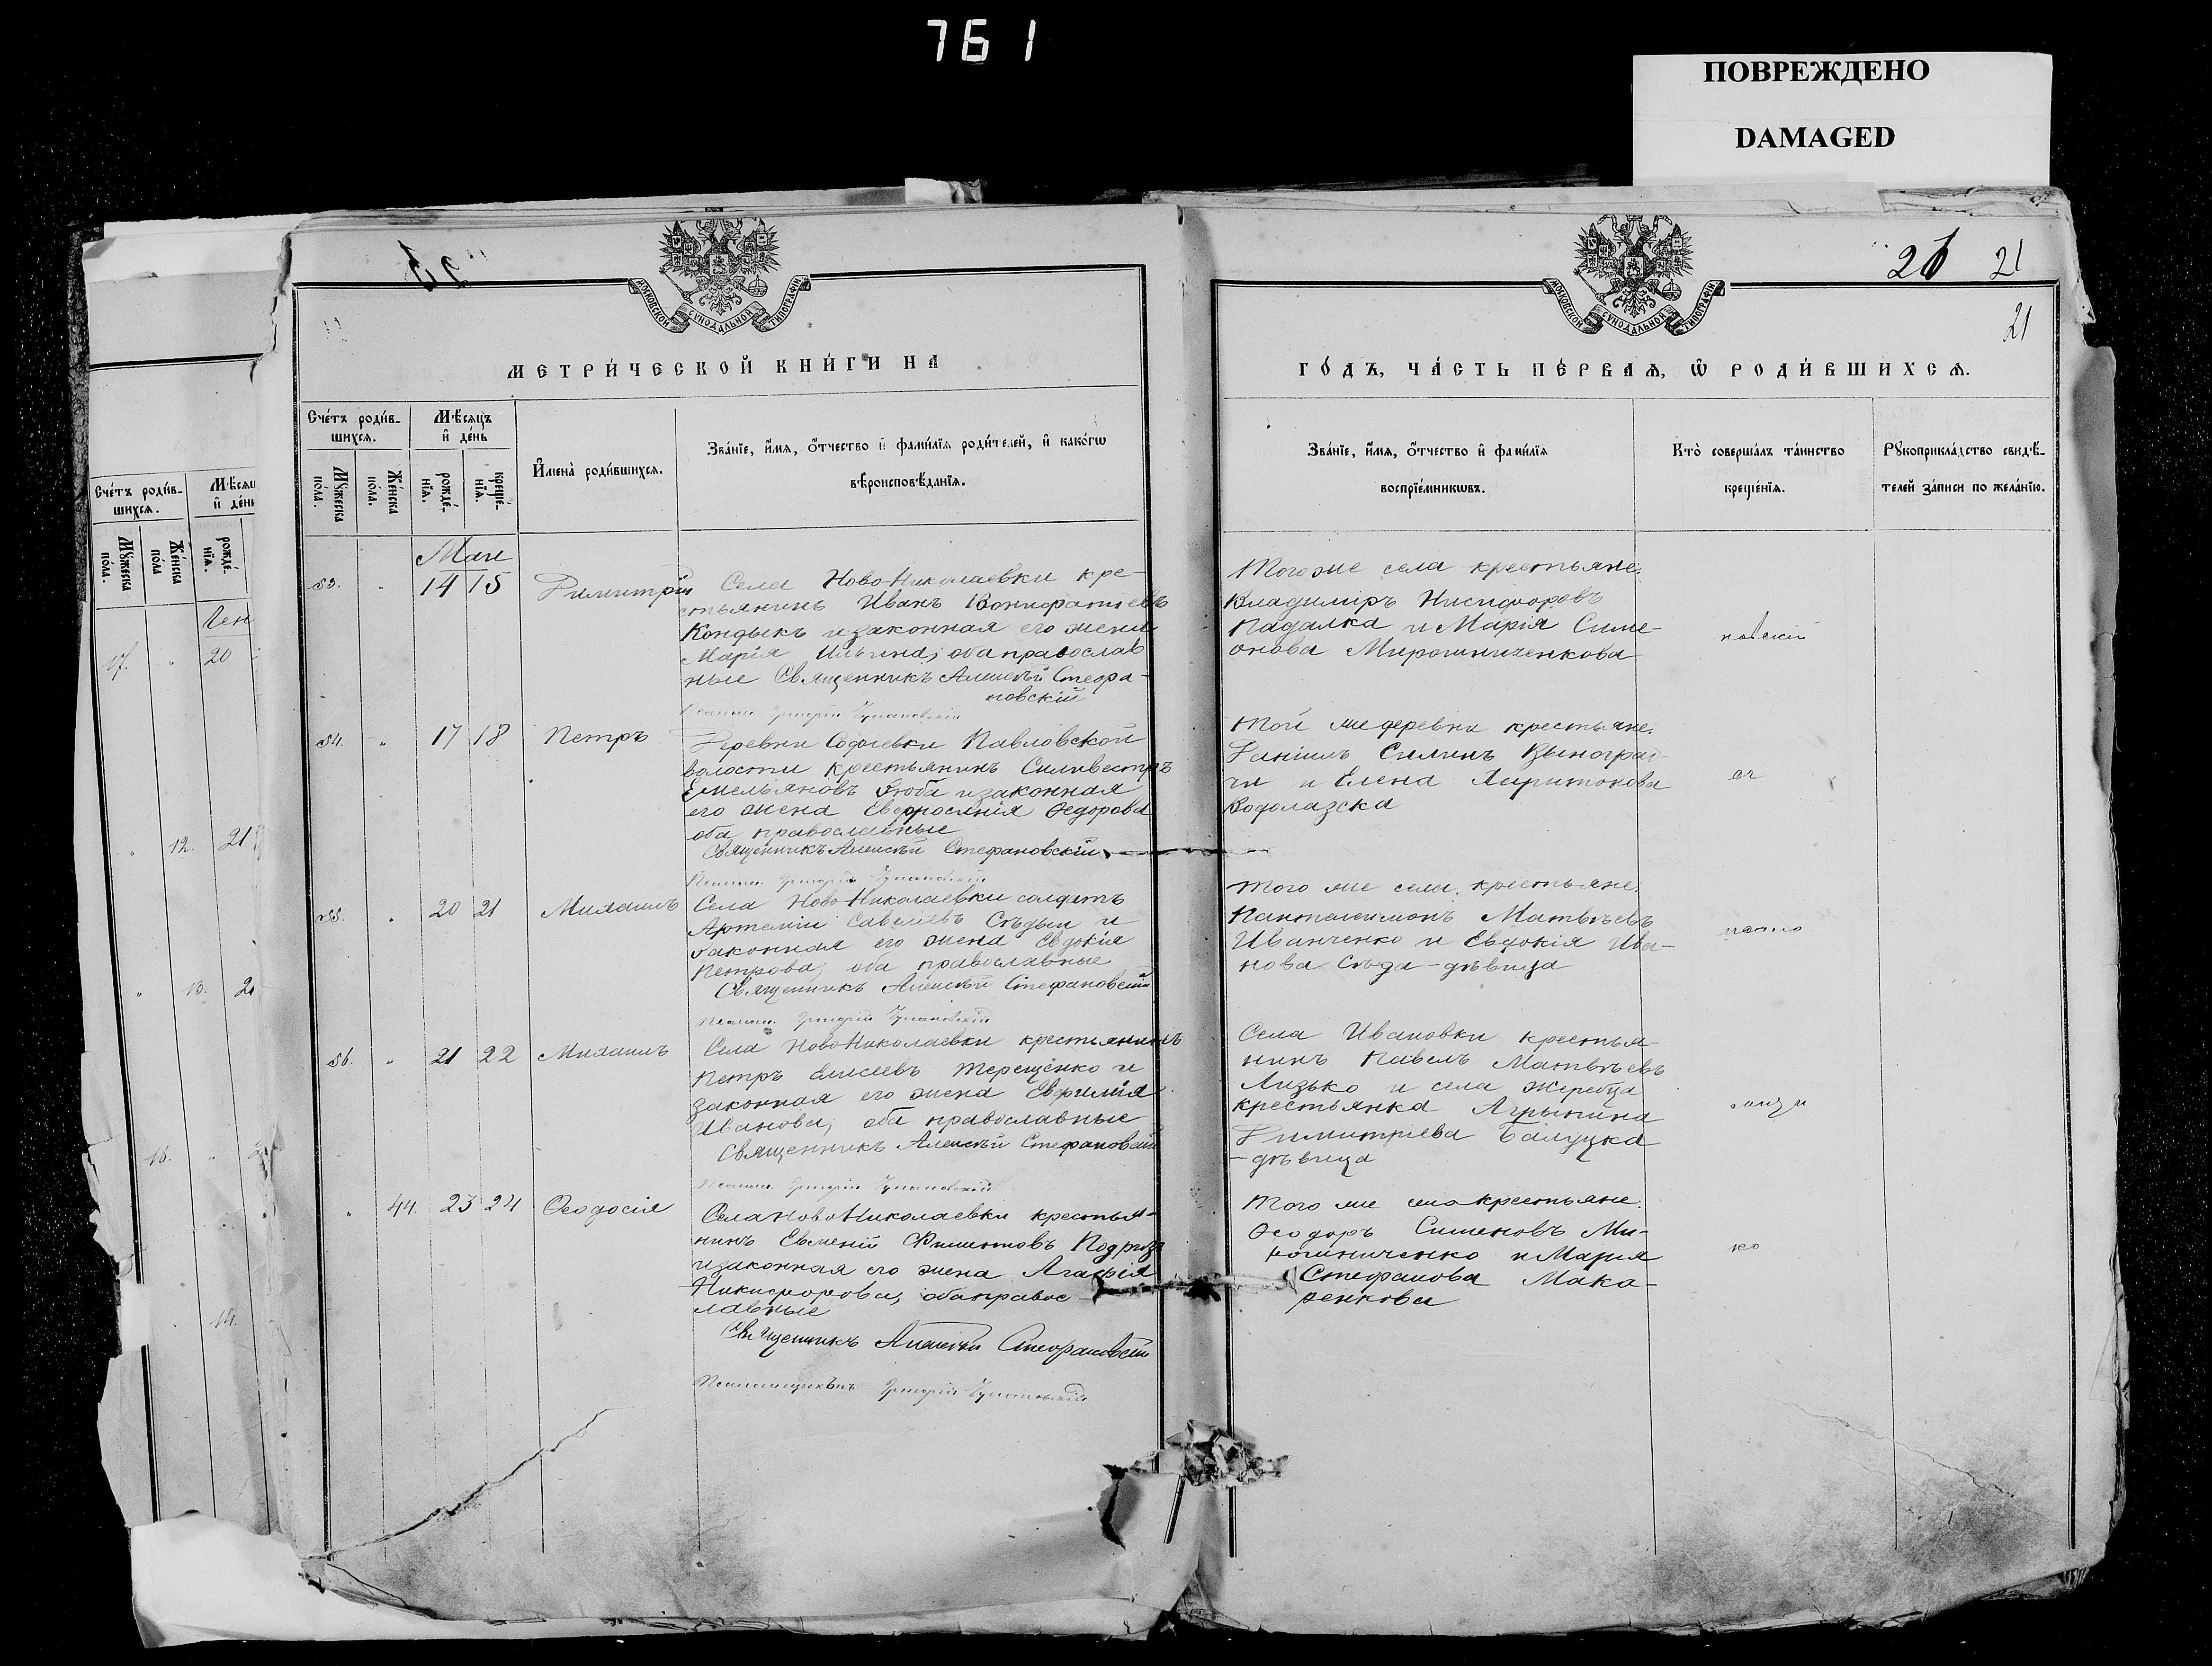 761
ПОВРЕЖДЕНО
DAMAGED
26 21
21
МОСКОВСКОЙ СѴНОДАЛЬНОЙ ТИПОГРАФІИ
МОСКОВСКОЙ СѴНОДАЛЬНОЙ ТИПОГРАФІИ
МЕТРИ́ЧЕСКОЙ КНИ́ГИ НА
ГО́ДЪ, ЧА́СТЬ ПЕ́РВАѦ, Ѽ РОДИ́ВШИХСѦ.
Сче́тъ роди́в-
шихся.
Мꙋжеска
по́ла.
Же́нска
по́ла
рожде́-
нїя.
Ген
17. " 20
" 12. 21
" 13.
18. "
14.
Сче́тъ роди́в-
шихся.
Мѣ́сяцъ
и҆ де́нь
Мꙋжеска
по́ла.
Же́нска
по́ла.
рожде́-
нїя.
креще́-
нїя.
И҆мена̀ роди́вшихся.
Зва́нїе, и҆́мя, ѻ҆́тчество и҆ фами́лїя роди́телей, и҆ како́гѡ
вѣроисповѣ́данїя.
Зва́нїе, и҆́мя, ѻ҆́тчество и҆ фами́лїя
воспрїе́мникѡвъ.
Кто̀ соверша́лъ та́инство
креще́нїя.
Рꙋкоприкла́дство свидѣ́-
телей за́писи по жела́нїю.
Маи
53. " 14 15 Димитрій
Села Ново-Николаевки кре-
стьянинъ Иванъ Вонифатіевъ
Кондыкъ и законная его жена
Марія Ильина; оба православ
ные Священникъ Алексѣй Стефа-
новскій
Того же села крестьяне:
Владиміръ Никифоровъ
Падалка и Марія Симе-
онова Мирошниченкова
новскій
54. " 17 18 Петръ
Деревни Софіевки Павловской
волости крестьянинъ Силивестръ
Емельяновъ и законная
его жена Евфросинія Ѳедорова
оба православные
Священникъ Алексѣй Стефановскій
Той же деревни крестьяне:
Даніилъ Силинъ
и Елена Харитонова
Водолазска
55. " 20 21 Михаилъ
Села Ново-Николаевки солдатъ
Артемій Савеліевъ Сѣдын и
законная его жена Евдокія
Петрова; оба православные
Священникъ Алексѣй Стефановскій
Того же села, крестьяне:
Пантелеимонъ Матвѣевъ
Иванченко и Евдокія Ива-
нова Сѣда-дѣвица
56. " 21 22 Михаилъ
Села Ново-Николаевки крестьянинъ
Петръ Елисеевъ Терещенко и
законная его жена Евфимія
Иванова; оба православные
Священникъ Алексѣй Стефановскій
Села Ивановки крестья-
нинъ Павелъ Матвѣевъ
Лизько и села Жеребца
крестьянка Агрыпина
Димитріева Балуцка
-дѣвица
" 44. 23 24 Ѳеодосія
Села Ново-Николаевки крестья-
нинъ Евгеній
и законная его жена Агафія
Никифорова, оба правос-
лавные
Священникъ Алексѣй Стефановскій
Псаломщикъ Григорій
Того же села крестьяне:
Ѳеодоръ Симеоновъ Ми-
рошниченко и Марія
Стефанова Мака-
ренкова
ко